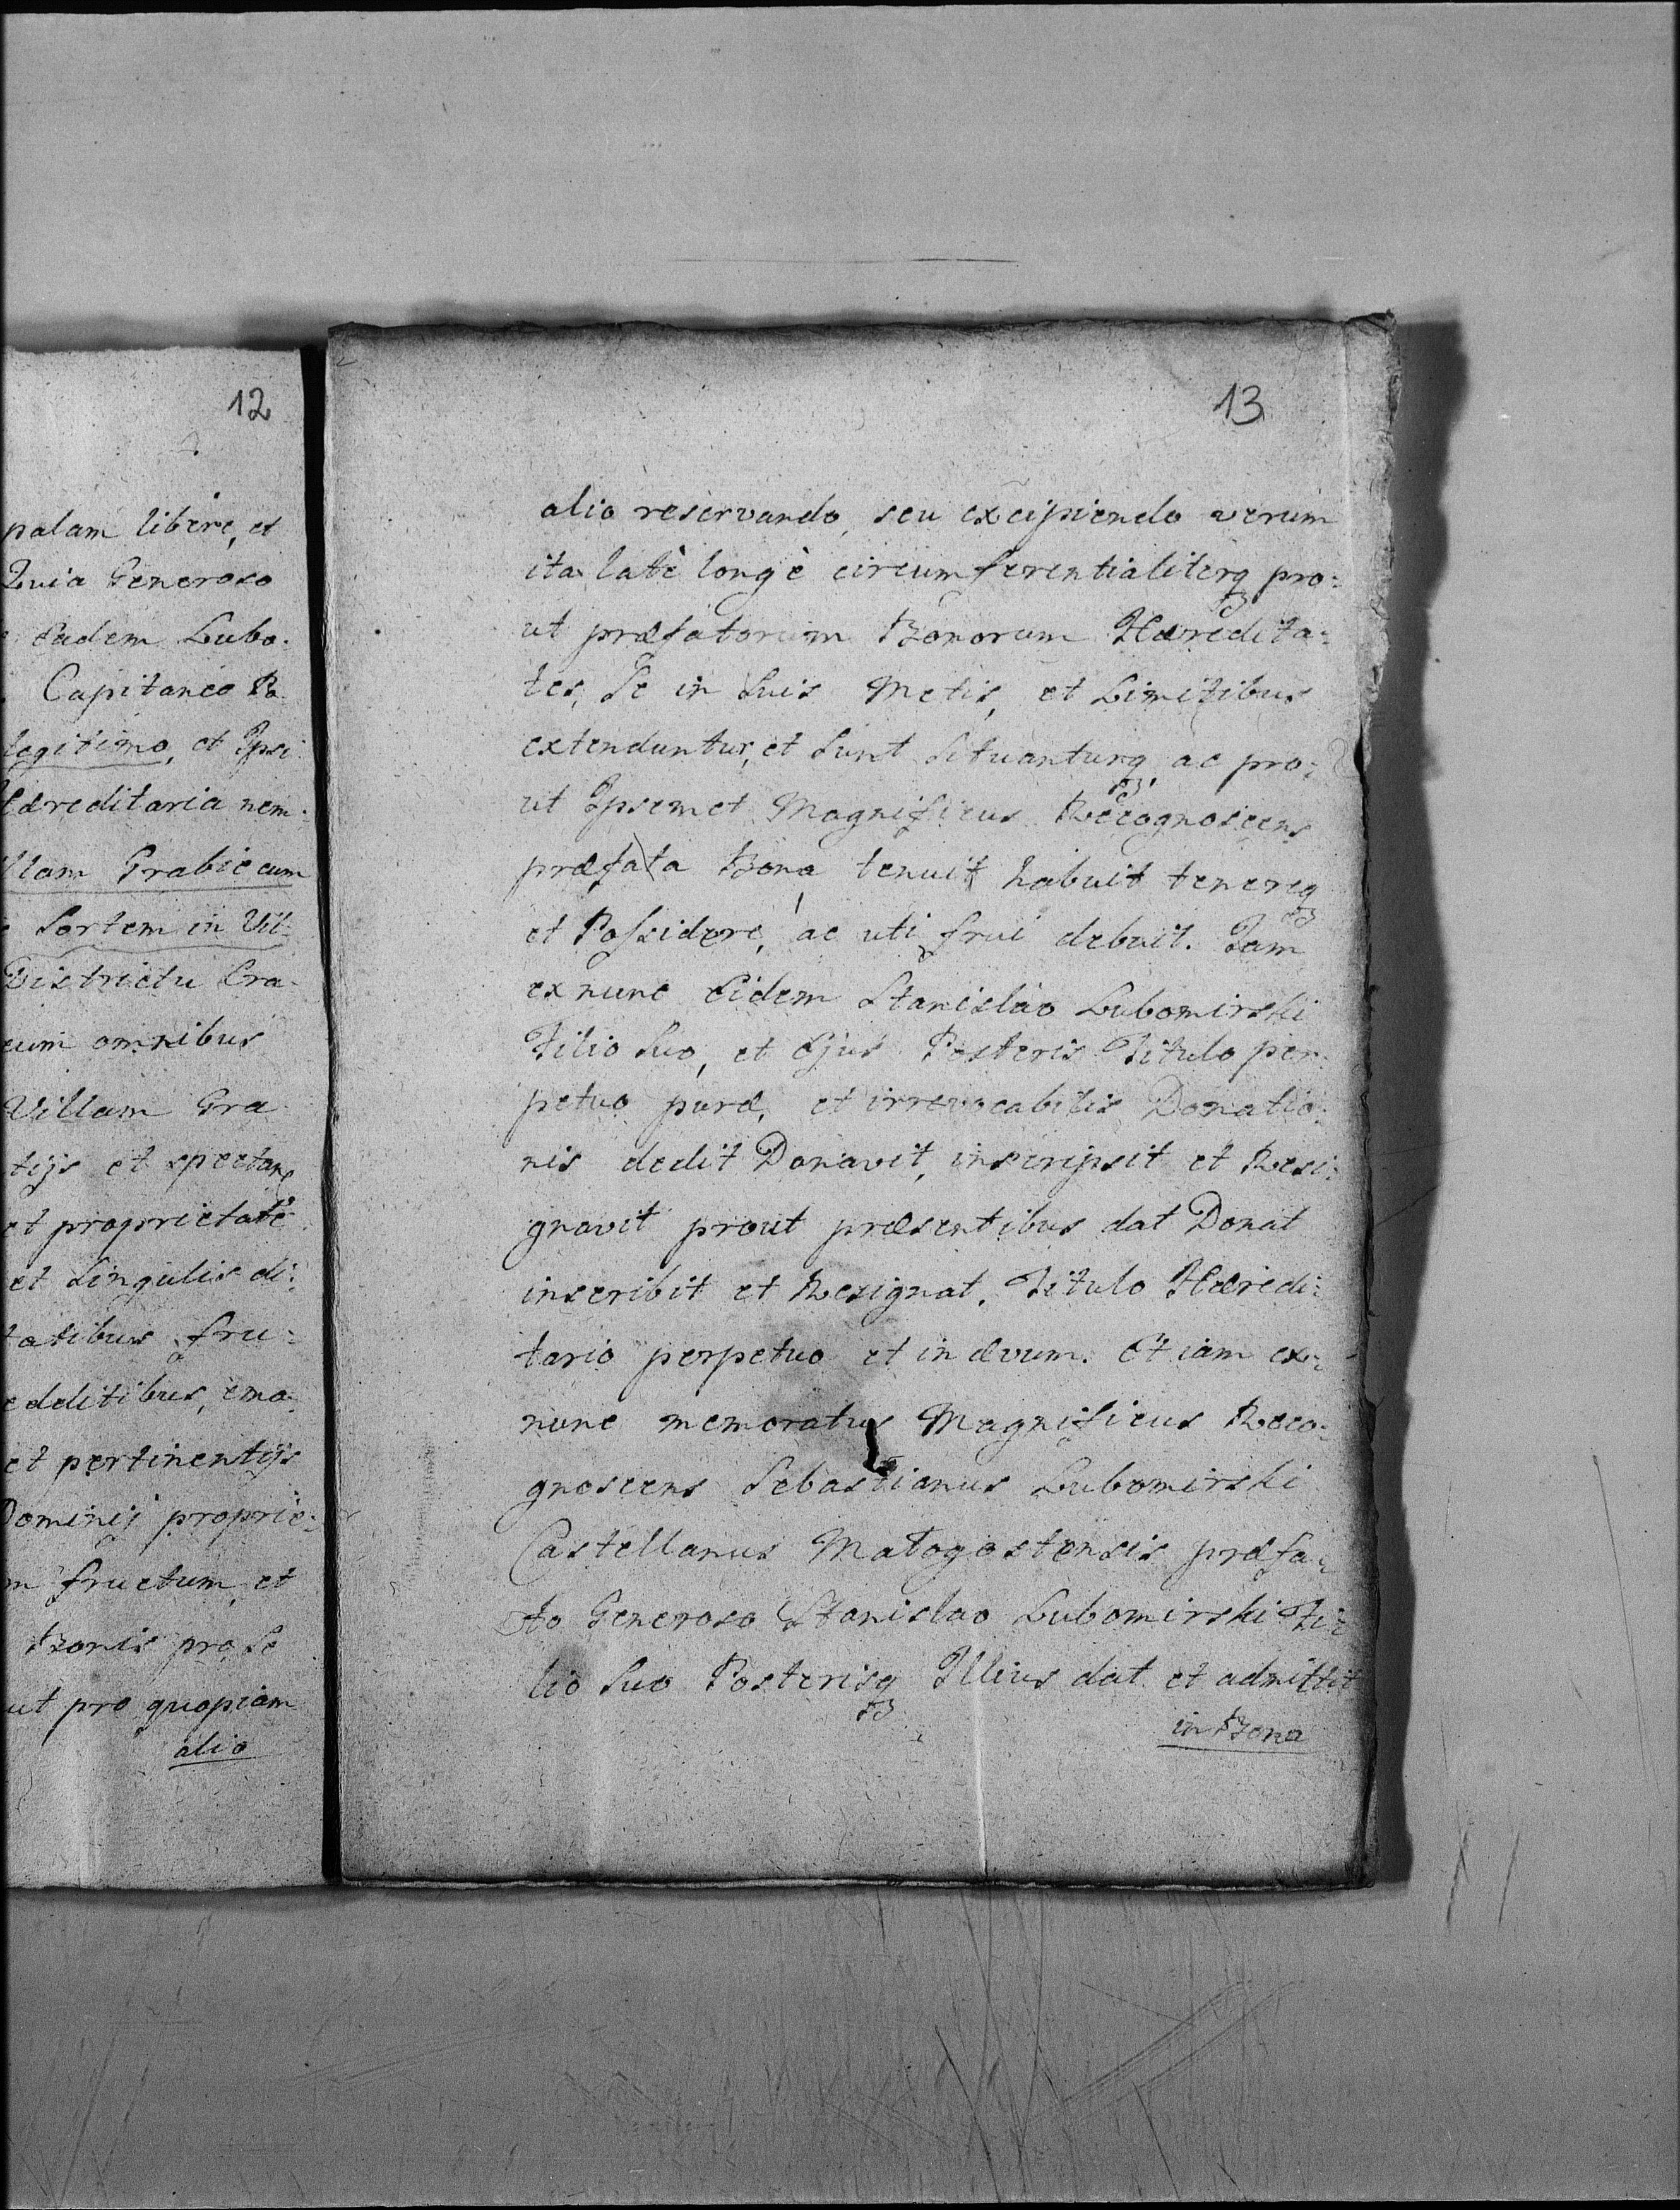 12
palam libere, et
Quia Generoso
eadem Lubo.
Capitaneo
legitimo, et Ipsi
Hæreditaria nem:
llam Grabie cum
Sortem in Vil:
Districtu Cra
cum omnibus
Villam Gra
tijs et spectan
et proprietate
et Singulis di:
tatibus fru:
edditibus, ema
et pertinentijs
Dominij proprie:
m fructum, et
Bonis pro Se
ut pro quopiam
alio
13
alio reservando, seu excipiendo verum
ita latè longè circumferentialiterq pro:
ut præfatorum Bonorum Hæredita:
tes, Se in Suis Metis, et Limitibus
extenduntur, et Sunt Situanturq, ac pro:
ut Ipsemet Magnificus Recognoscens
præfata Bona tenuit habuit tenereq
et Possidere, ac uti frui debuit. Jam
ex nunc Eidem Stanislao Lubomirski
Filio Suo, et Ejus Posteris Titulo per
petuo puræ, et irrevocabilis Donatio:
nis dedit Donavit, inscripsit et Resi:
gnavit prout præsentibus dat Donat
inscribit et Resignat. Titulo Hæredi:
tario perpetuo et in ævum. Et iam ex:
nunc memoratus Magnificus Reco:
gnoscens Sebastianus Lubomirski
Castellanus Małogostensis præfa:
to Generoso Stanislao Lubomirski Fi:
lio Suo Posterisq Illius dat et admittit
in Bona